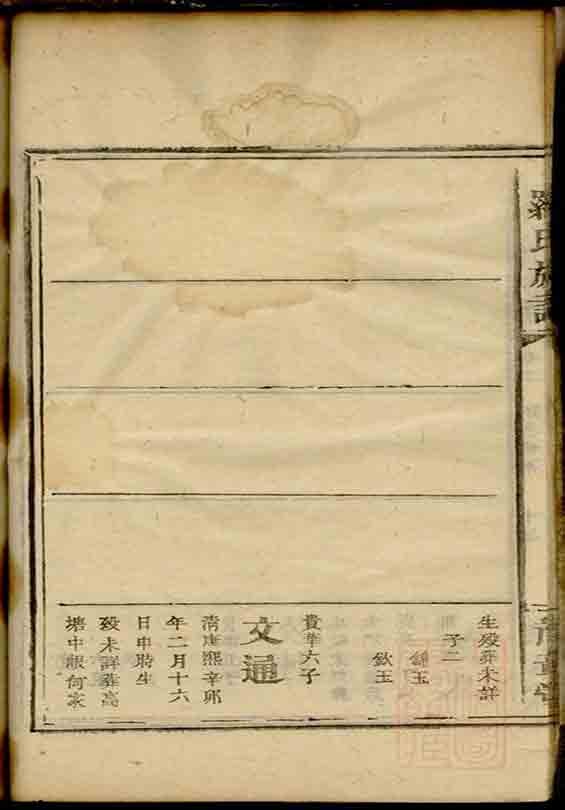 羅氏族譜
生歿葬未詳
子二
錦玉
欽玉
貴華六子
文通
清康熙辛卯
年二月十六
日申時生
歿未詳葬高
塘中㘭何家